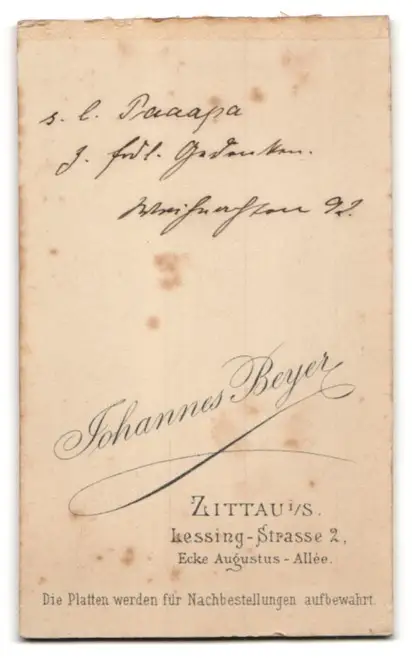 s. l. Paaapa
z. frdl. Gedenken.
Weihnachten 92.
Johannes Beyer
ZITTAU i/S.
Lessing-Strasse 2,
Ecke Augustus-Allée.
Die Platten werden für Nachbestellungen aufbewahrt.